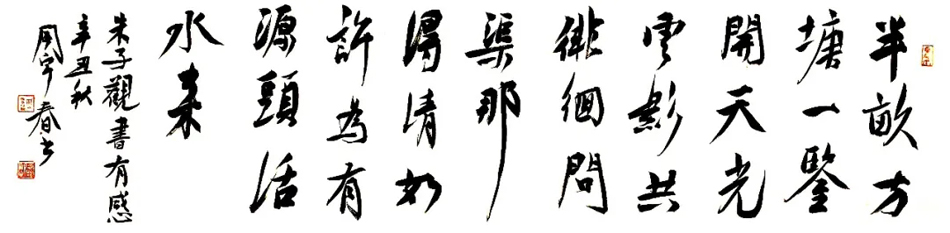 半畝方
塘一鑒
開天光
雲影共
徘徊問
渠那
得清如
許為有
源頭活
水来
朱子觀書有感
辛丑秋
周宇春书